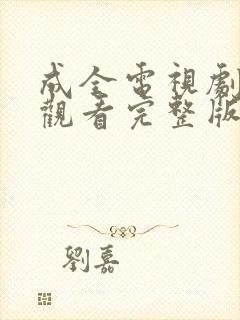 成全電視劇
觀看完整版
劉嘉